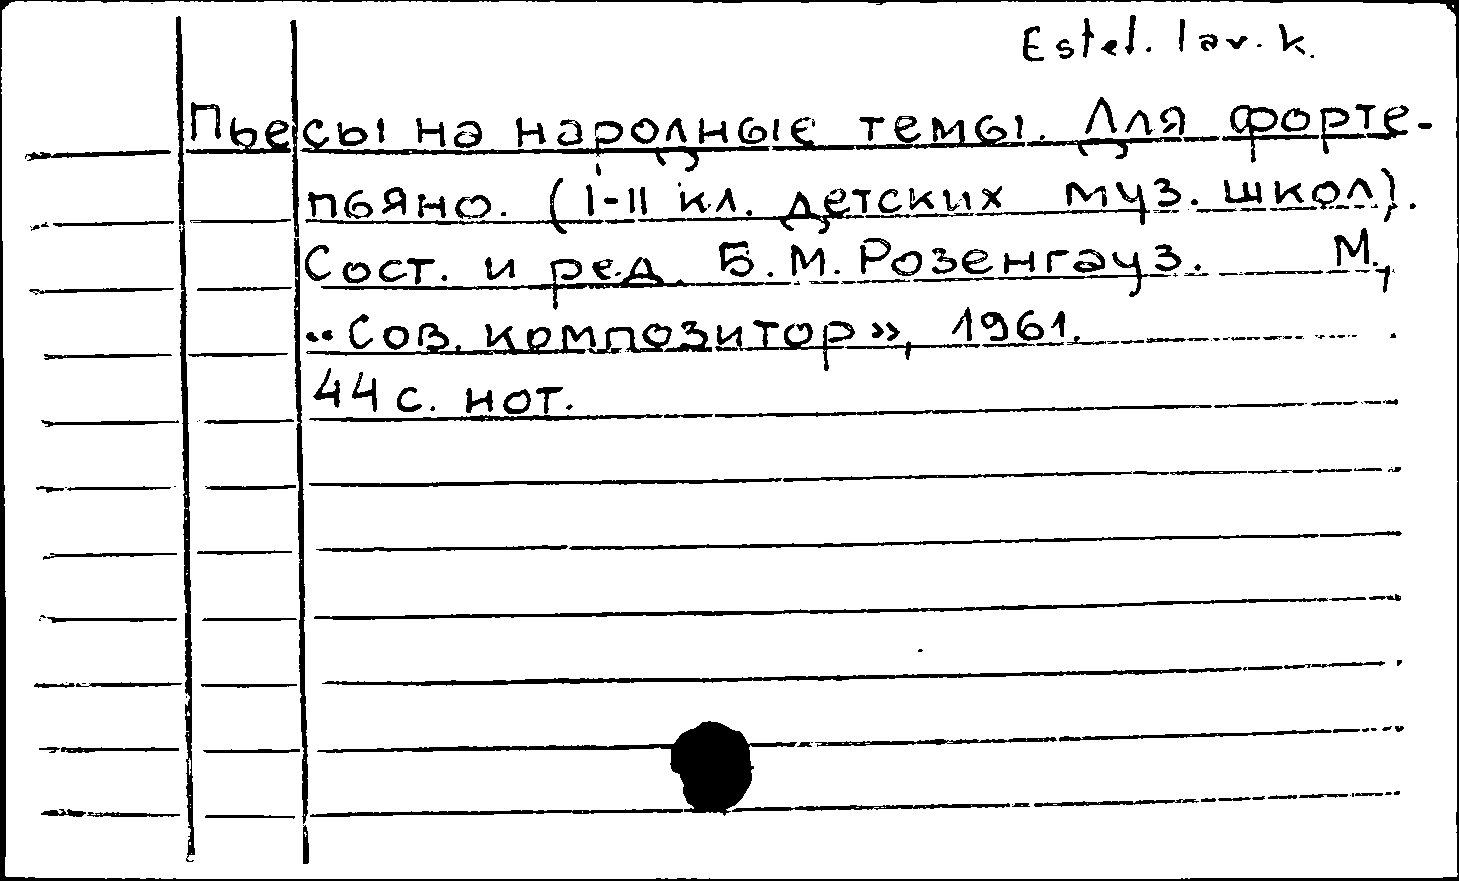 Estet. lav. k.
Пьесы на народные темы. Для форте-
пьяно. (I-II кл. детских муз. школ).
Сост. и ред. Б.М. Розенгауз. М.,
"Сов. композитор», 1961.
44 с. нот.